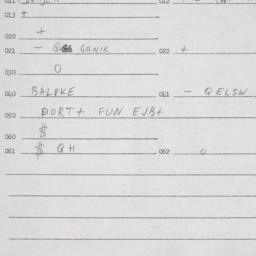 013 +
020 +
021 - Q GANIK 022 +
030 O
040 BALPKE 041 - QELSW
050 DORT+ FUN EJB+
060 $
061 $ QH 062 O